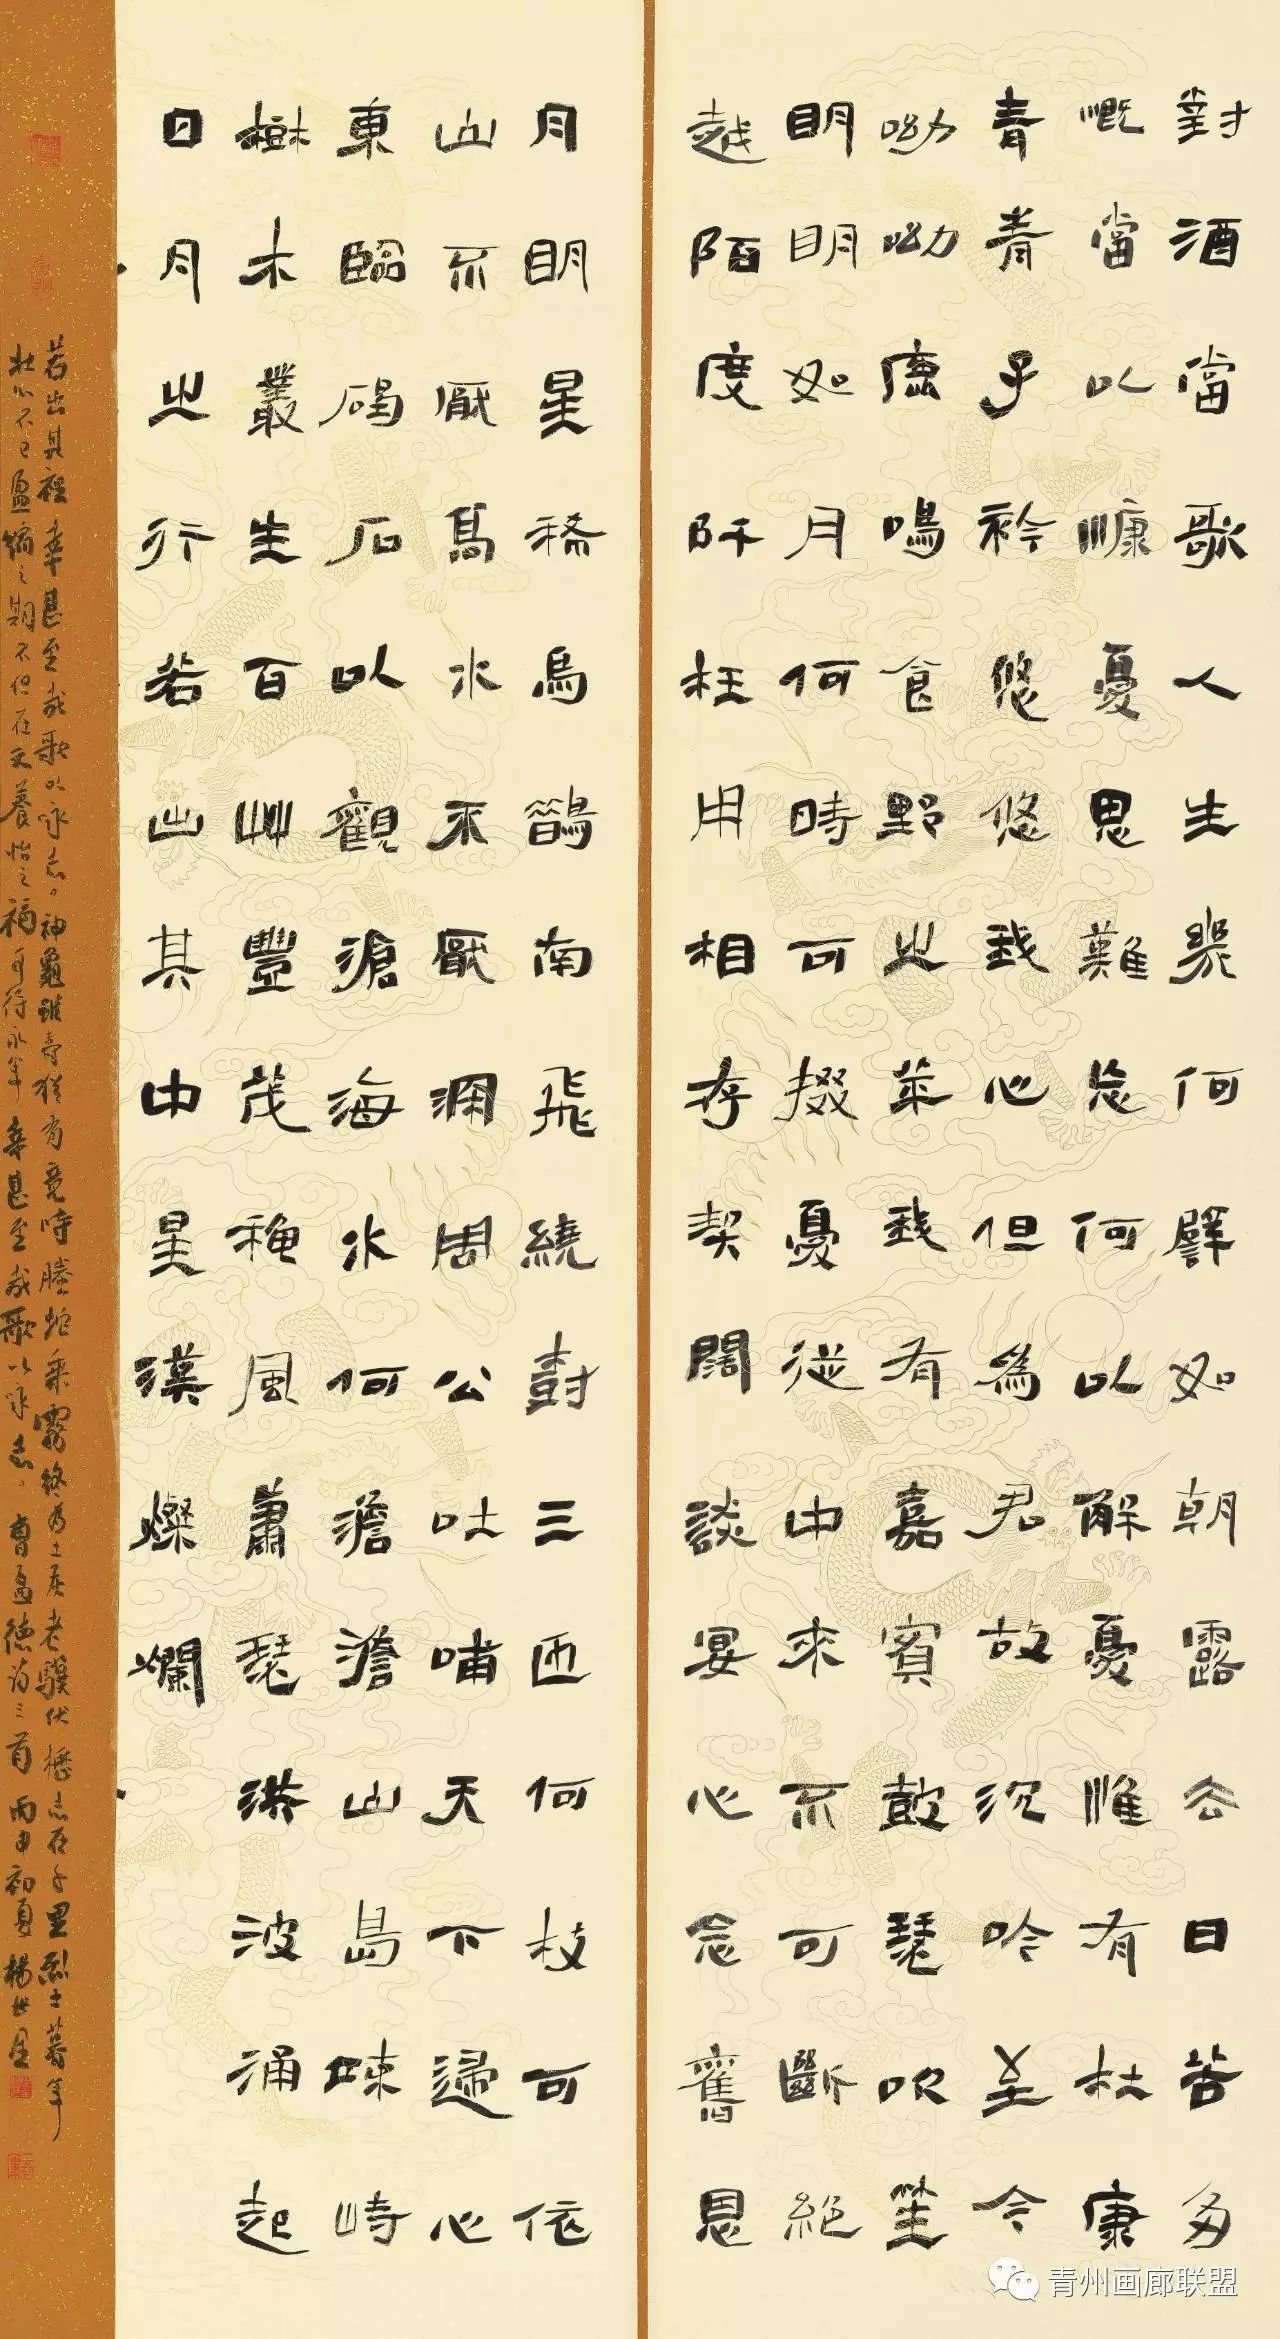 對酒當歌人生幾何譬如朝露去日苦多
慨當以慷憂思難忘何以解憂惟有杜康
青青子衿悠悠我心但為君故沉吟至今
呦呦鹿鳴食野之苹我有嘉賓鼓瑟吹笙
明明如月何時可掇憂從中來不可斷絕
越陌度阡枉用相存契闊談宴心念舊恩
月明星稀烏鵲南飛繞樹三匝何枝可依
山不厭高水不厭深周公吐哺天下歸心
東臨碣石以觀滄海水何澹澹山島竦峙
樹木叢生百艸豐茂秋風蕭瑟洪波涌起
日月之行若出其中星漢燦爛
若出其裡幸甚至哉歌以詠志神龜雖壽猶有竟時騰蛇乘霧終為土灰老驥伏櫪志在千里烈士暮年
壯心不已盈縮之期不但在天養怡之福可得永年幸甚至哉歌以詠志曹孟德詩三首丙申初夏楊世全
青州画廊联盟